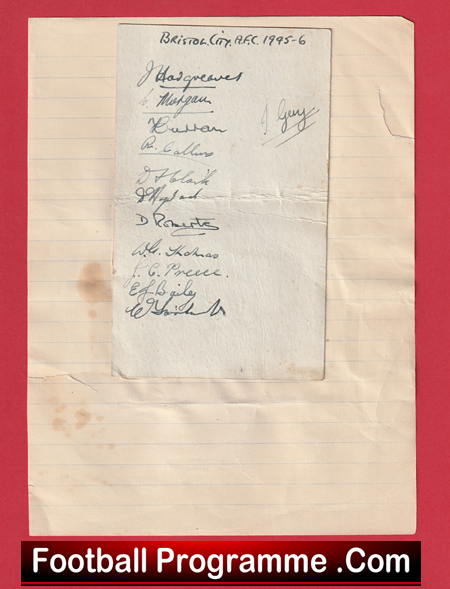 BRISTOL. CITY. A.F.C. 1945-6
J Hargreaves
C. Morgan
I Guy
Curran
R. Collins
D F Clark
D Roberts
W.G. Thomas
J. C. Preece.
E J Bailey
Football Programme .Com